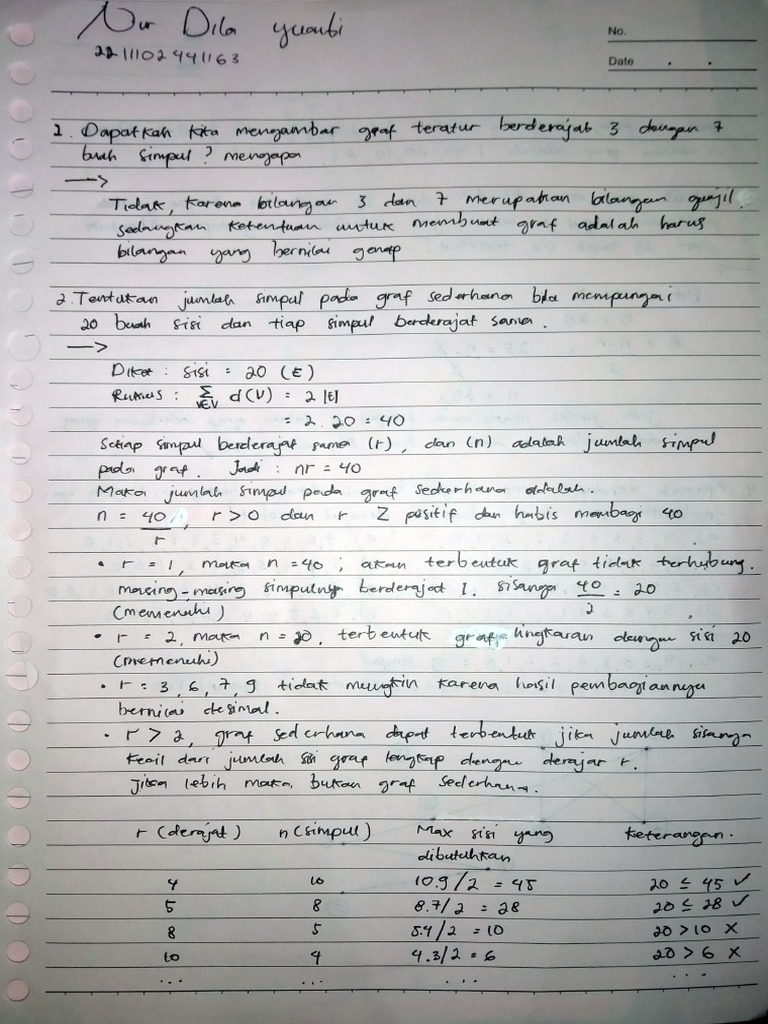 Nur Dila Yuanbi
2211102441163
No.
Date . .
1. Dapatkah kita mengambar graf teratur berderajat 3 dengan 7
buah simpul? mengapa
→
Tidak, karena bilangan 3 dan 7 merupakan bilangan ganjil.
sedangkan ketentuan untuk membuat graf adalah harus
bilangan yang bernilai genap
2. Tentukan jumlah simpul pada graf sederhana bila mempunyai
20 buah sisi dan tiap simpul berderajat sama.
→
Diket : sisi = 20 (E)
Rumus : Σ v∈V d(V) = 2 |E|
= 2 . 20 = 40
Setiap simpul berderajat sama (r), dan (n) adalah jumlah simpul
pada graf. Jadi : nr = 40
Maka jumlah simpul pada graf sederhana adalah.
n = 40/r, r > 0 dan r Z positif dan habis membagi 40
• r = 1, maka n = 40 ; akan terbentuk graf tidak terhubung.
masing-masing simpulnya berderajat 1. sisanya 40/2 = 20
(memenuhi)
• r = 2, maka n = 20, terbentuk graf lingkaran dengan sisi 20
(memenuhi)
• r = 3, 6, 7, 9 tidak mungkin karena hasil pembagiannya
bernilai desimal.
• r > 2, graf sederhana dapat terbentuk jika jumlah sisanya
kecil dari jumlah sisi graf lengkap dengan derajar r.
Jika lebih maka bukan graf sederhana.
r (derajat) n (simpul) Max sisi yang keterangan.
dibutuhkan
4 10 10.9/2 = 45 20 ≤ 45 ✓
5 8 8.7/2 = 28 20 ≤ 28 ✓
8 5 5.4/2 = 10 20 > 10 X
10 4 4.3/2 = 6 20 > 6 X
... ... ... ...